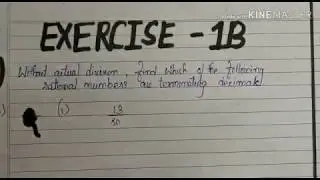 Made with KINEMASTER
EXERCISE - 1B
Without actual division, find which of the following
rational numbers are terminating decimals
(i) 13